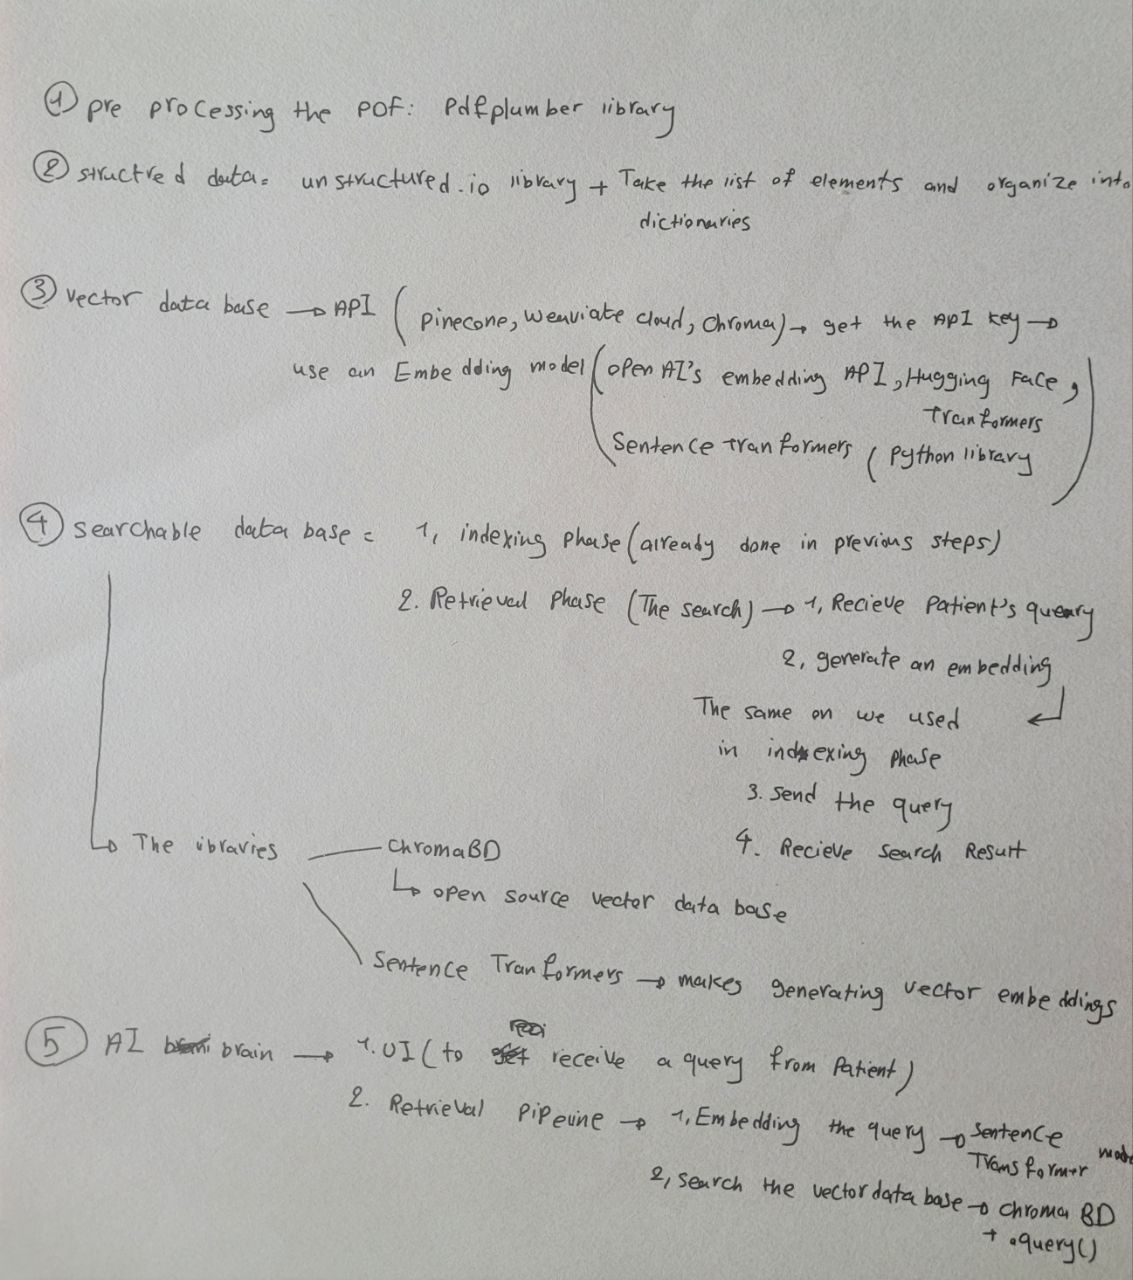 ① pre processing the PDF: Pdfplumber library
② structred data= unstructured.io library + Take the list of elements and organize into
dictionaries
③ vector data base → API ( Pinecone, Weaviate cloud, Chroma) → get the API key →
use an Embedding model ( open AI's embedding API, Hugging Face,
Tranformers
Sentence tranformers ( Python library )
④ searchable data base = 1, indexing phase (already done in previous steps)
2. Retrieval Phase (The search) → 1, Recieve Patient's query
2, generate an embedding
The same on we used
in indexing phase
3. send the query
4. Recieve search Result
↳ The ibraries — chromaBD
↳ open source vector data base
Sentence Tranformers → makes generating vector embeddings
⑤ AI brain → 1. UI (to receive a query from Patient)
2. Retrieval Pipeline → 1, Embedding the query → Sentence
Transformer
2, search the vector data base → chroma BD
+ .query()